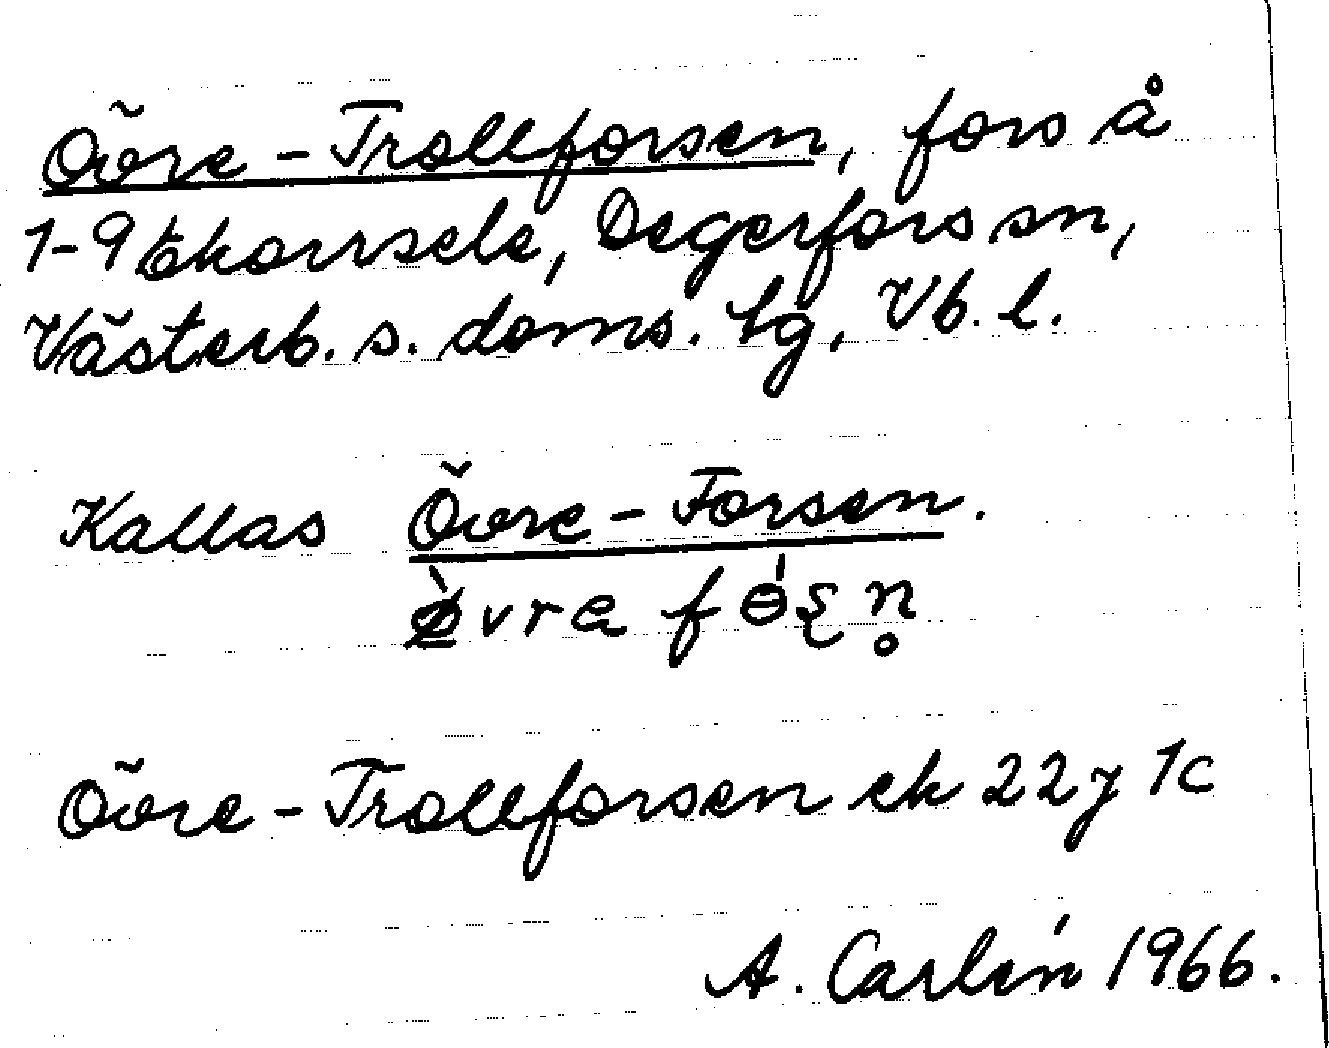 Övre-Trollforsen, fors å
1-9 Ekorrsele, Degerfors sn,
Västerb. s. doms. tg, Vb. l.
Kallas Övre-Forsen.
Övre-Trollforsen ek 22j 1c
A. Carlén 1966.